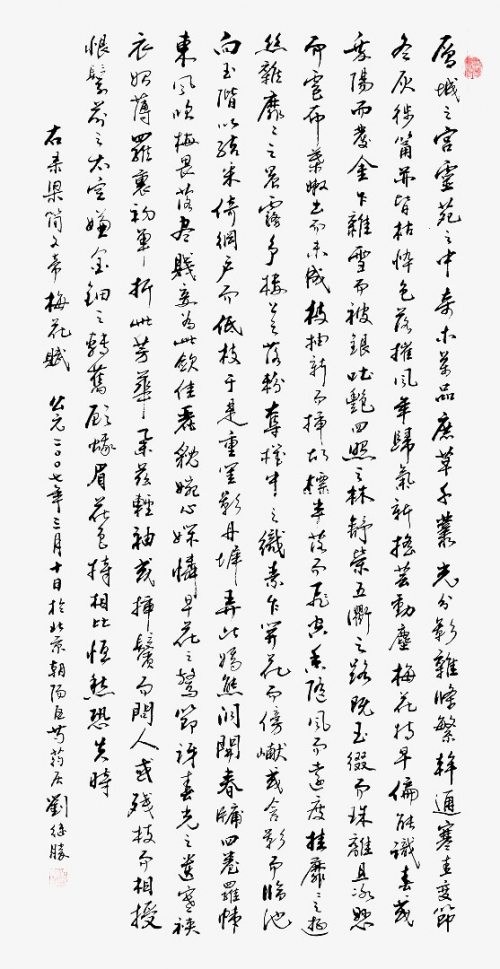 層城之宮靈苑之中奇木萬品庶草千叢光分影雜條繁幹通寒圭變節
冬灰徙筩並皆枯悴色落摧風年歸氣新搖芸動塵梅花特早偏能識春或
承陽而發金乍雜雪而被銀吐艷四照之林舒榮五衢之路既玉綴而珠離且冰懸
而雹布葉嫩出而未成枝抽新而插故標半落而飛空香隨風而遠度挂靡々之遊
絲雜靡々之晨霧爭樓上之落粉奪機中之織素乍開花而傍巘或含影而臨池
向玉階以結采倚網戶而低枝于是重閨影丹墀弄此嬌態洞開春牖四卷羅帷
東風吹梅畏落盡賤妾為此斂佳麗貌婉心嫻憐早花之驚節訝春光之遣寒裌
衣始薄羅裹初單折此芳華舉茲輕袖或插鬢而問人或殘枝而相授
恨鬟前之太空嫌金鈿之轉舊顧蛾眉花色持相比恒愁恐失時
右录梁簡文帝梅花賦 公元二〇〇七年三月十日於北京朝陽區芍药居劉繼勝